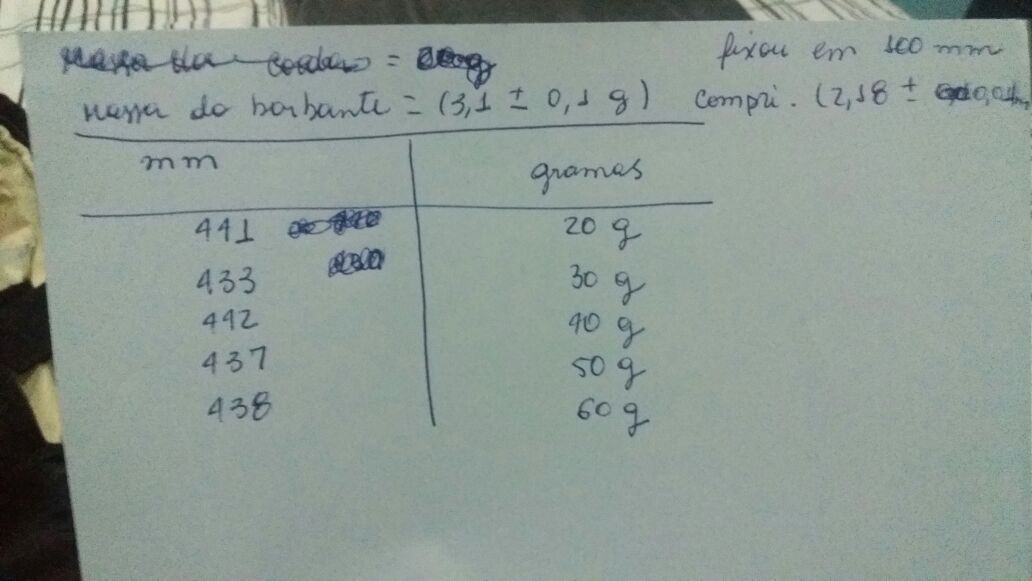 fixou em 100 mm
massa do barbante = (3,1 ± 0,1 g) compri. (2,18 ±
mm gramas
441 20 g
433 30 g
442 40 g
437 50 g
438 60 g